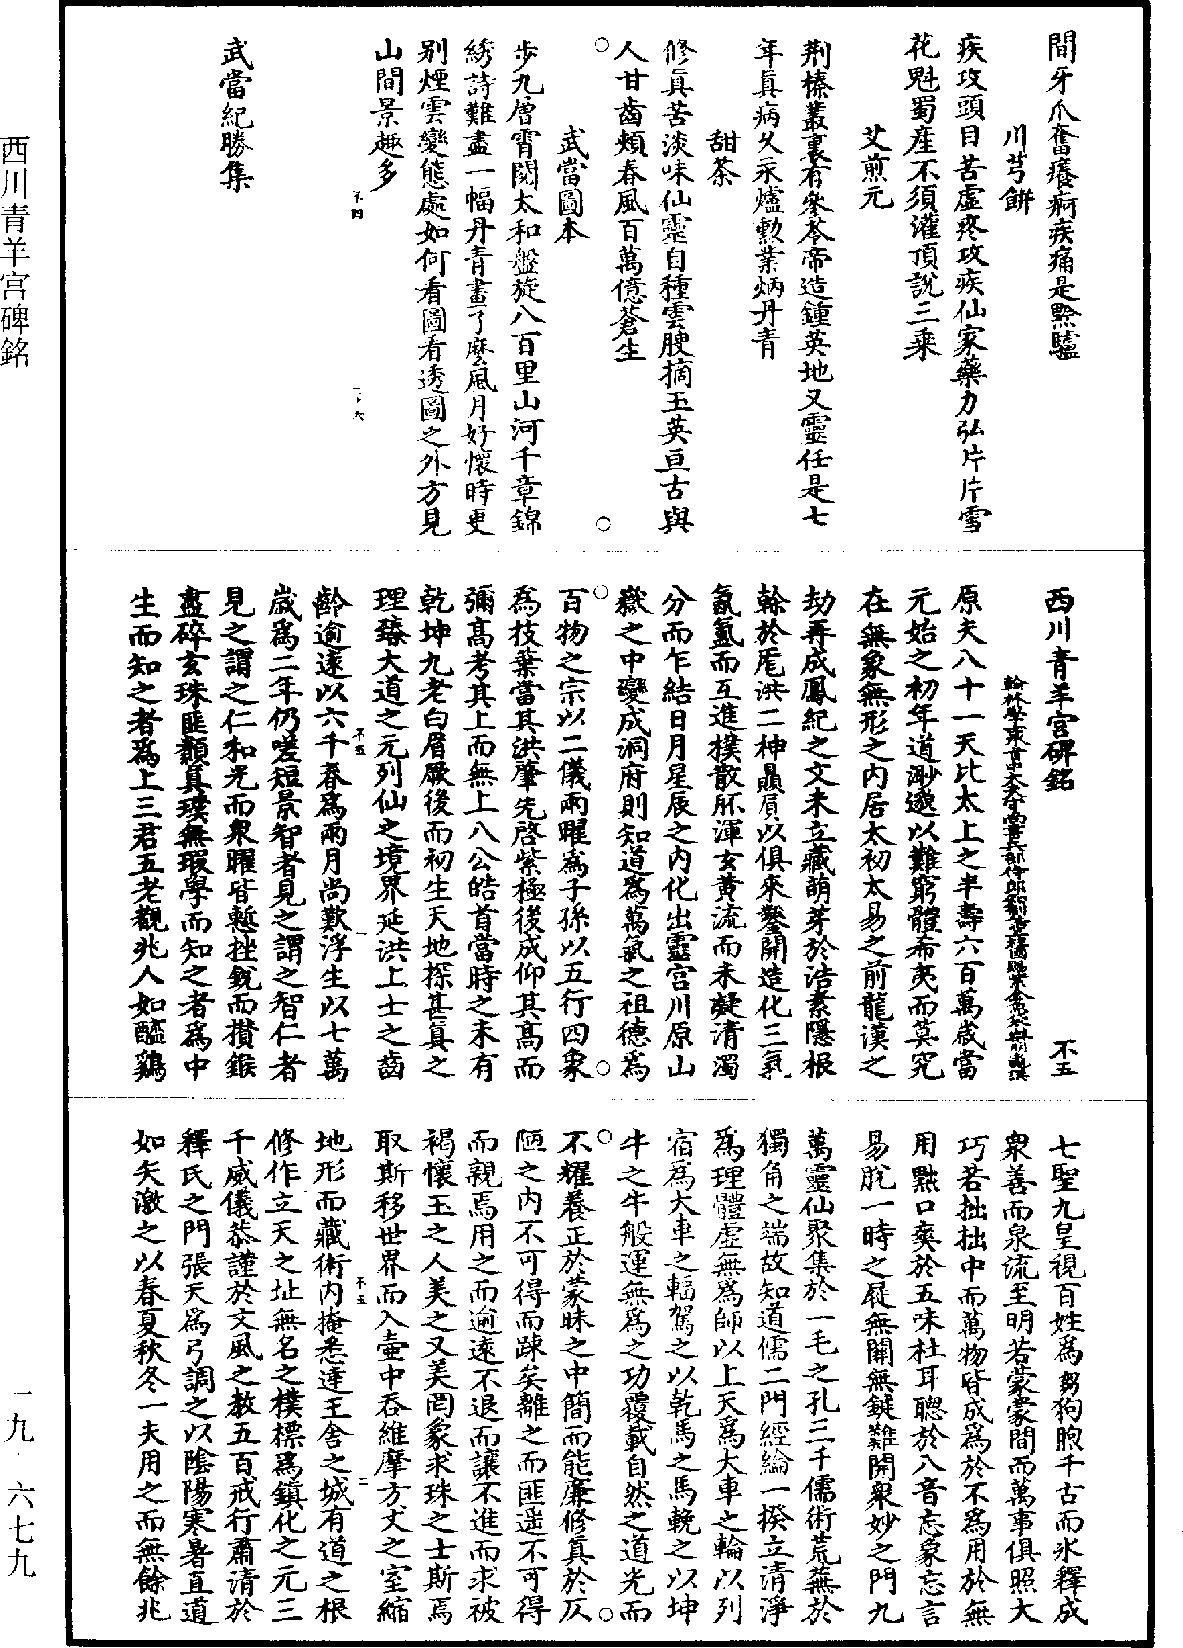 間牙爪奮癢痾疾痛是黔驢
川芎餅
疾攻頭目苦虛疼攻疾仙家藥力弘片片雪
花魁蜀産不須灌頂說三乘
艾煎元
荆榛叢裏有參苓帝造鍾英地又靈任是七
年真病久永爐勲業炳丹青
甜茶
修真苦淡味仙靈自種雲腴摘玉英亘古與
人甘齒頰春風百萬億蒼生
武當圖本
步九層霄閟太和盤旋八百里山河千章錦
綉詩難盡一幅丹青畫了麽風月好懷時更
别煙雲變態處如何看圖看透圖之外方見
山間景趣多
不四
武當紀勝集
西川青羊宮碑銘
不五
原夫八十一天比太上之半壽六百萬歲當
元始之初年道渺邈以難窮體希夷而莫究
在無象無形之内居太初太易之前龍漢之
劫再成鳳紀之文未立藏萌芽於浩素隱根
榦於厖洪二神贔屓以俱來鑿開造化三氣
氤氳而互進撲散胚渾玄黃流而未凝清濁
分而乍結日月星辰之内化出靈宮川原山
嶽之中變成洞府則知道爲萬氣之祖德爲
百物之宗以二儀兩曜爲子孫以五行四象
爲技葉當其洪肇先啓紫極後成仰其高而
彌高考其上而無上八公皓首當時之未有
乾坤九老白眉厥後而初生天地探甚真之
理臻大道之元列仙之境界延洪上士之齒
齡逾遠以六千春爲兩月尚歎浮生以七萬
歲爲二年仍嗟短景智者見之謂之智仁者
見之謂之仁和光而衆曜皆慙挫銳而攢鋒
盡碎玄珠匪纇真璞無瑕學而知之者爲中
生而知之者爲上三君五老觀兆人如醯鷄
七聖九皇視百姓爲芻狗朐千古而氷釋成
衆善而泉流至明若蒙蒙間而萬事俱照大
巧若拙拙中而萬物皆成爲於不爲用於無
用㸃口爽於五味杜耳聰於八音忘象忘言
易脫一時之屣無關無鍵難開衆妙之門九
萬靈仙聚集於一毛之孔三千儒術荒蕪於
獨角之端故知道儒二門經綸一揆立清淨
爲理體虛無爲師以上天爲大車之輪以列
宿爲大車之輻駕之以乾馬之馬輓之以坤
牛之牛般運無爲之功覆載自然之道光而
不耀養正於蒙昧之中簡而能廉修真於仄
陋之内不可得而踈矣離之而匪遥不可得
而親焉用之而逾遠不退而讓不進而求被
褐懷玉之人美之又美罔象求珠之士斯焉
取斯移世界而入壷中吞維摩方丈之室縮
地形而藏術内掩悉達王舍之城有道之根
修作立天之址無名之樸標爲鎮化之元三
千威儀恭謹於文風之教五百戒行肅清於
釋氏之門張天爲弓調之以陰陽寒暑直道
如矢激之以春夏秋冬一夫用之而無餘兆
西川青羊宮碑銘
一九·六七九